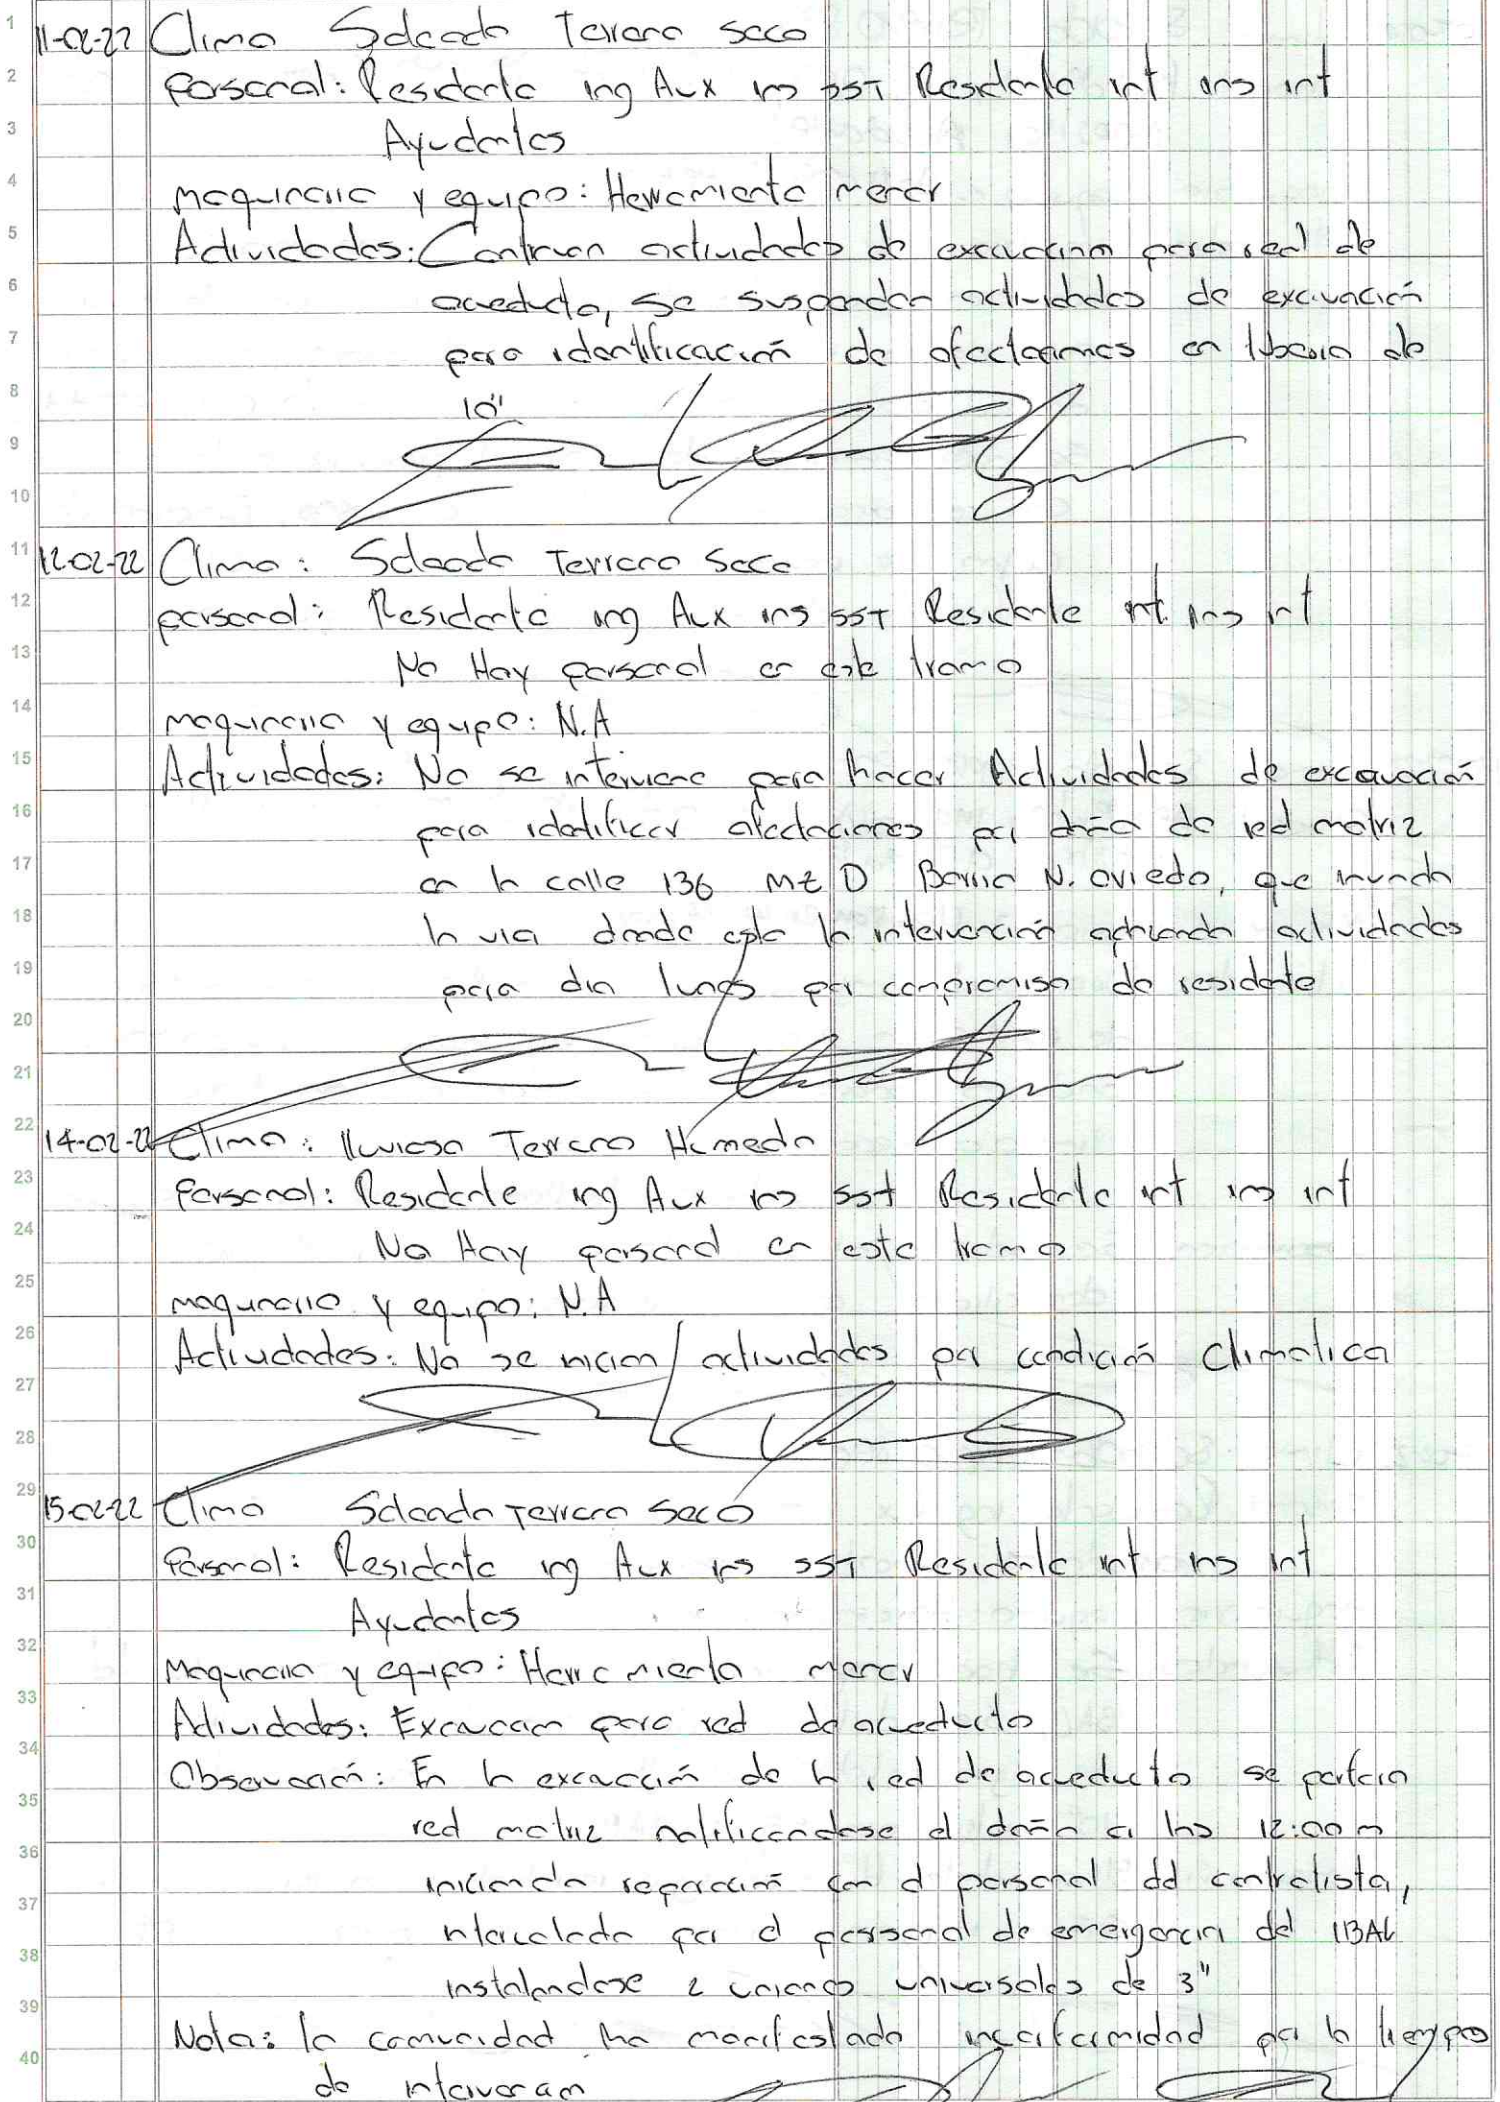 11-02-22 Clima Soleado Terreno seco
Personal: Residente ing Aux ins SST Residente int ins int
Ayudantes
maquinaria y equipo: Herramienta menor
Actividades: Continuan actividades de excavacion para red de
acueducto, se suspenden actividades de excavación
para identificación de afectaciones en tuberia de
10"
12-02-22 Clima: Soleado Terreno Seco
personal: Residente ing Aux ins SST Residente int. ins int
No Hay personal en este tramo
maquinaria y equipo: N.A
Actividades: No se interviene para hacer Actividades de excavación
para identificar afectaciones por daño de red matriz
en la calle 136 Mz D Barrio N. Oviedo, que inunda
la via donde esta la intervención actividades
para dia lunes por compromiso de residente
14-02-22 Clima: lluvioso Terreno Humedo
Personal: Residente ing Aux ins SST Residente int ins int
No Hay personal en este tramo
maquinaria y equipo: N.A
Actividades: No se inician actividades por condición Climatica
15-02-22 Clima Soleado Terreno Seco
Personal: Residente ing Aux ins SST Residente int ins int
Ayudantes
Maquinaria y equipo: Herramienta Menor
Actividades: Excavacion para red de acueducto
Observación: En la excavación de la red de acueducto se
red matriz notificandose el daño a las 12:00 m
iniciando reparación con el personal del contratista,
por el personal de emergencia del IBAL
instalandose 2 uniones universales de 3"
Nota: la comunidad ha manifestado inconformidad por la tiempos
de intervencion
1
2
3
4
5
6
7
8
9
10
11
12
13
14
15
16
17
18
19
20
21
22
23
24
25
26
27
28
29
30
31
32
33
34
35
36
37
38
39
40